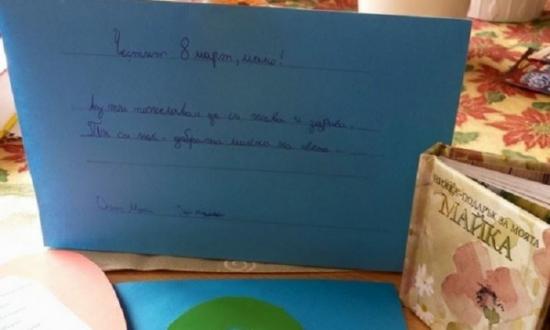 Честит 8 март, мамо!
ти пожелавам да си жива и здрава.
Ти си най- добрата майка на света.
КНИЖКА-ПОДАРЪК ЗА МОЯТА
МАЙКА